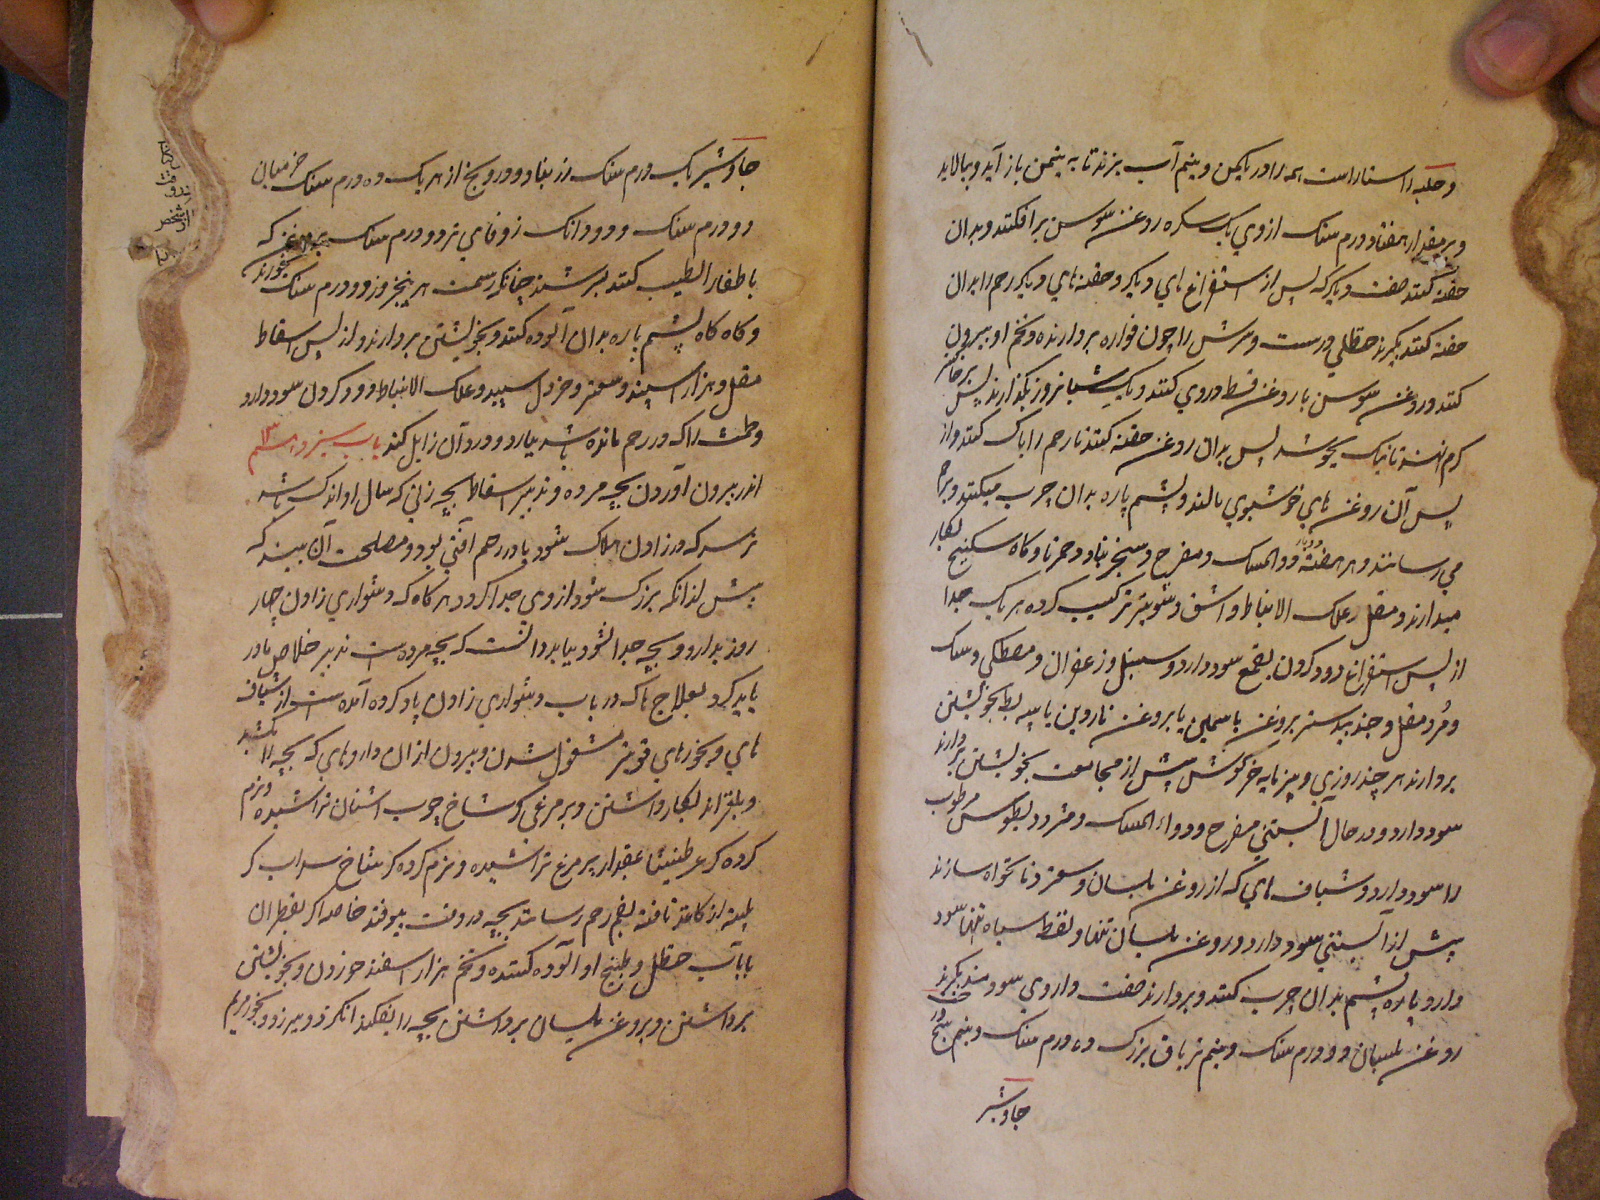 و حلبه راستاراست همه را در یکمن و نیم آب بپزند تا به نیمن باز آید و بپالاید
و بمقدار هفتاد درم سنک از وي یک سکره روغن سوسن برافکنند و بدان
حقنه کنند صفت دیکر که پس از استفراغ هاي دیکر و حقنه هاي دیکر رحم را بدان
حقنه کنند بکیرند حنظلي درست و سرش را چون فواره بردارند و تخم او بیرون
کنند و روغن سوسن با روغن قسط در وي کنند و یک شبانروز بکذارند پس بر خاکستر
کرم نهند تا نیک بجوشد پس بدان روغن حقنه کنند تا رحم را پاک کند و از
پس آن روغن هاي خوشبوي مالند و پشم پاره بدان چرب میکنند و برحم
مي رسانند و هر هفته دوبار دواالمسک و مفرح و سجزنیا و دحمرثا و کاه سکبینج بکار
میدارند و مقل و علک الانباط و اشق و شونیز ترکیب کرده هر یک جدا
از پس استفراغ دود کردن بقمع سود دارد و سنبل و زعفران و مصطکي و سک
و مر و مقل و جندبیدستر بروغن یاسمین یا بروغن ناردین یا پیه بط بخویشتن
بردارند هر چند روزي و پنیر مایه خرکوش پیش از مجامعت بخویشتن بردارند
سود دارد و در حال آبستني مفرح و دواء المسک و مثرودیطوس مرطوب
را سود دارد و شیاف هاي که از روغن بلسان و سعتر و نانخواه سازند
پیش از آبستني سود دارد و روغن بلسان تنها و نفط سیاه تنها سود
دارد پاره پشم بدان چرب کنند و بردارند صفت داروي سودمند بکیرند
روغن بلسان دو درم سنک و نیم تریاق بزرک ده درم سنک و نیم
جاوشیر
جاوشیر یک درم سنک زرنباد و درونج از هر یک ده درم سنک خرمیان
دو درم سنک و دو دانک زوفاي تر دو درم سنک بروغن که
با ظفار الطیب کنند بسرشند چنانکه رسمت هر پنج روز دو درم سنک بخورند
و کاه کاه پشم پاره بدان آلوده کنند و بخویشتن بردارند و از پس اسقاط
مقل و هزار اسپند و سعتر و خردل سپید و علک الانباط دود کردن سود دارد
و طمث را که در رحم مانده باشد بیارد و درد آن زایل کند باب سیزدهم
اندر بیرون آوردن بچه مرده و تدبیر اسقاط بچه زني که سال او اندک باشد
ترسند که در زادن هلاک شود یا در رحم آفتي بود و مصلحت آن بیند که
پیش از آنکه بزرک شود از وي جدا کردد هر کاه که دشواري زادن چهار
روز بدارد و بچه جدا نشود بباید دانست که بچه مرده ست تدبیر خلاص مادر
باید کرد بعلاج ها که در باب دشواري زادن یاد کرده آمده است از شیاف
هاي و بخورهاي قویتر مشغول شدن و بیرون از ان داروهاي که بچه را بکشد
و بلغزاند بکار داشتن و پر مرغي و شاخ چوب اشنان تراشیده و نرم
کرده کر عرطنیثا بمقدار پر مرغ تراشیده و نرم کرده کر شاخ سداب کر
پلیته از کاغذ تافته بفم رحم رسانند بچه در وقت بیوفتد خاصه اکر بقطران
یا بآب حنظل و بلنج او آلوده کنند و تخم هزار اسفند خوردن و بخویشتن
برداشتن و بروغن بلسان برداشتن بچه را بفکند انکزد و بیرزد و بخور مریم